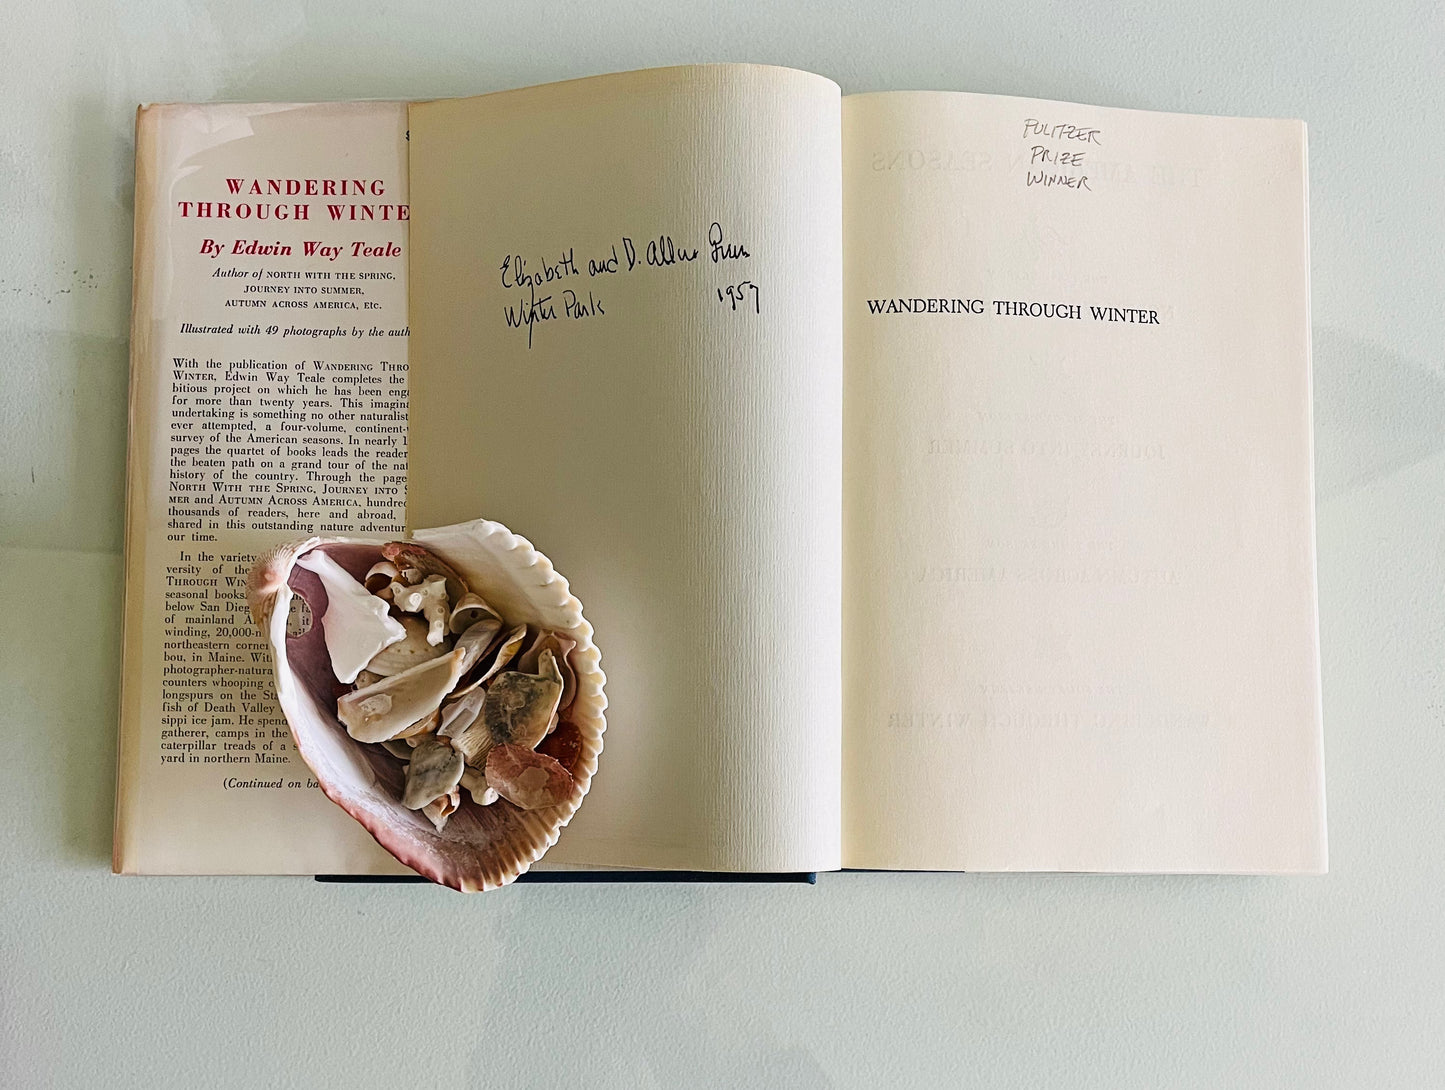 WANDERING
THROUGH WINTE
By Edwin Way Teale
Author of NORTH WITH THE SPRING,
JOURNEY INTO SUMMER,
AUTUMN ACROSS AMERICA, etc.
Illustrated with 49 photographs by the auth
With the publication of WANDERING THRO
WINTER, Edwin Way Teale completes the
bitious project on which he has been enga
for more than twenty years. This imagina
undertaking is something no other naturalist
ever attempted, a four-volume, continent-
survey of the American seasons. In nearly 1
pages the quartet of books leads the reader
the beaten path on a grand tour of the nat
history of the country. Through the page
NORTH WITH THE SPRING, JOURNEY INTO S
MER and AUTUMN ACROSS AMERICA, hundred
thousands of readers, here and abroad,
shared in this outstanding nature adventur
our time.
In the variety
versity of the
THROUGH WIN
seasonal books.
below San Dieg
of mainland A
winding, 20,000-
northeastern corner
bou, in Maine. Wit
photographer-natura
counters whooping c
longspurs on the Sta
fish of Death Valley
sippi ice jam. He spend
gatherer, camps in the
caterpillar treads of a s
yard in northern Maine.
(Continued on ba
Elizabeth and D. Alden
Winter Park 1957
PULITZER
PRIZE
WINNER
WANDERING THROUGH WINTER